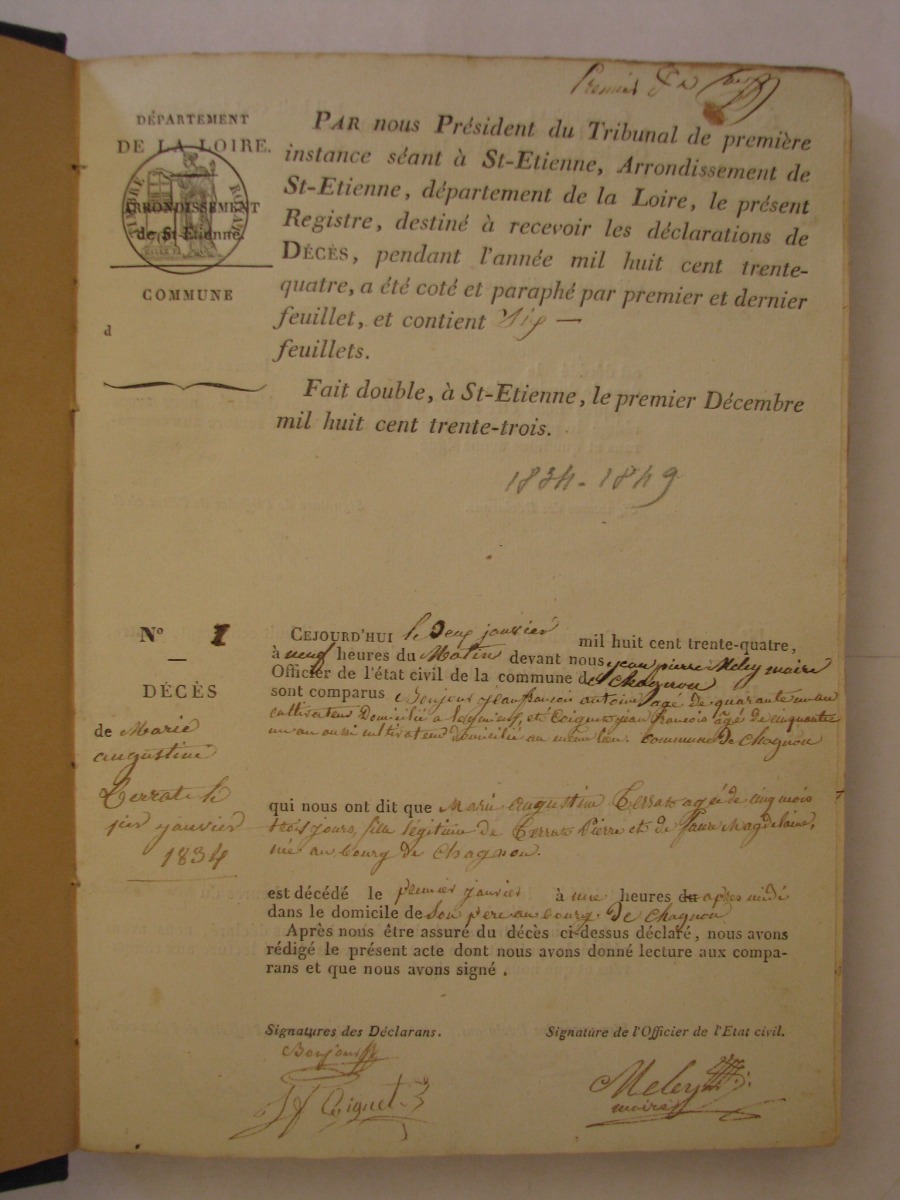 Premier
DÉPARTEMENT
DE LA LOIRE.
TIMBRE ROYAL
ARRONDISSEMENT
de St-Etienne.
COMMUNE
d
PAR nous Président du Tribunal de première
instance séant à St-Etienne, Arrondissement de
St-Etienne, département de la Loire, le présent
Registre, destiné à recevoir les déclarations de
DÉCÈS, pendant l'année mil huit cent trente-
quatre, a été coté et paraphé par premier et dernier
feuillet, et contient six —
feuillets.
Fait double, à St-Etienne, le premier Décembre
mil huit cent trente-trois.
1834-1849
N° 1
DÉCÈS
de Marie
augustine
Terrat le
1er janvier
1834
CEJOURD'HUI le Deux janvier mil huit cent trente-quatre,
à neuf heures du Matin devant nous jean pierre Meley maire
Officier de l'état civil de la commune de chagnon
sont comparus Bonjour jean francois antoine agé de quarante un an
cultivateur Domicilié a et jean francois agé de cinquante
un an aussi cultivateur domicilié au meme lieu. commune De chagnon
qui nous ont dit que Marie augustine Terrat agée de cinq mois
trois jours, fille légitime de Terrat Pierre et de Faure Magdelaine,
née au bourg de chagnon.
est décédé le premier janvier à une heures du apres midi
dans le domicile de son pere au bourg de chagnon
Après nous être assuré du décès ci-dessus déclaré, nous avons
rédigé le présent acte dont nous avons donné lecture aux compa-
rans et que nous avons signé.
Signatures des Déclarans.
Signature de l'Officier de l'Etat civil.
Bonjour
Meley
maire